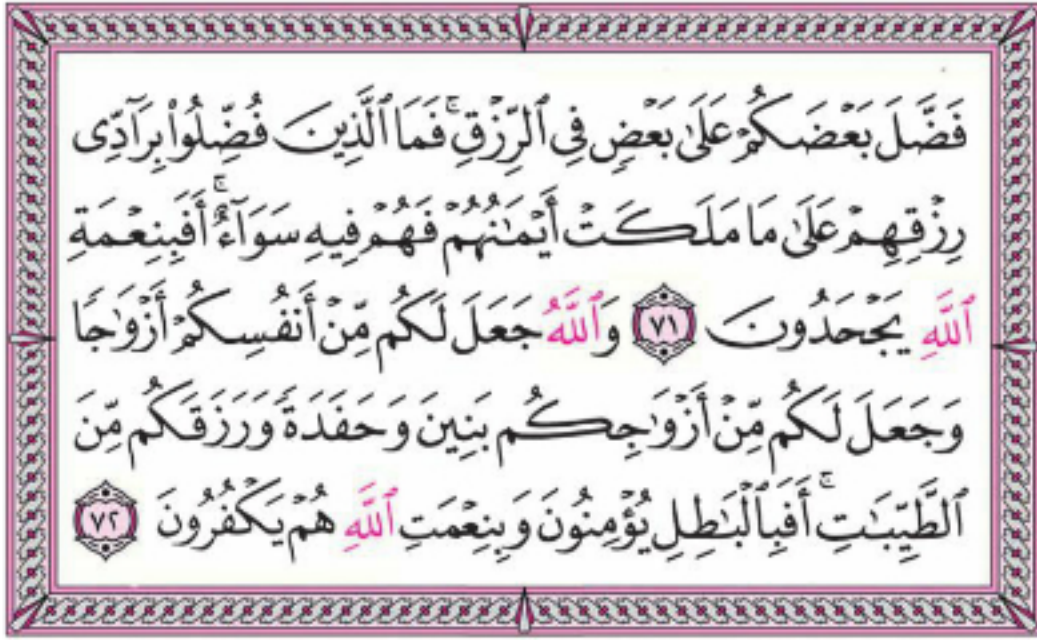 فَضَّلَ بَعْضَكُمْ عَلَىٰ بَعْضٍ فِي ٱلرِّزْقِ ۚ فَمَا ٱلَّذِينَ فُضِّلُوا۟ بِرَآدِّى
رِزْقِهِمْ عَلَىٰ مَا مَلَكَتْ أَيْمَٰنُهُمْ فَهُمْ فِيهِ سَوَآءٌ ۚ أَفَبِنِعْمَةِ
ٱللَّهِ يَجْحَدُونَ ٧١ وَٱللَّهُ جَعَلَ لَكُم مِّنْ أَنفُسِكُمْ أَزْوَٰجًا
وَجَعَلَ لَكُم مِّنْ أَزْوَٰجِكُم بَنِينَ وَحَفَدَةً وَرَزَقَكُم مِّنَ
ٱلطَّيِّبَٰتِ ۚ أَفَبِٱلْبَٰطِلِ يُؤْمِنُونَ وَبِنِعْمَتِ ٱللَّهِ هُمْ يَكْفُرُونَ ٧٢